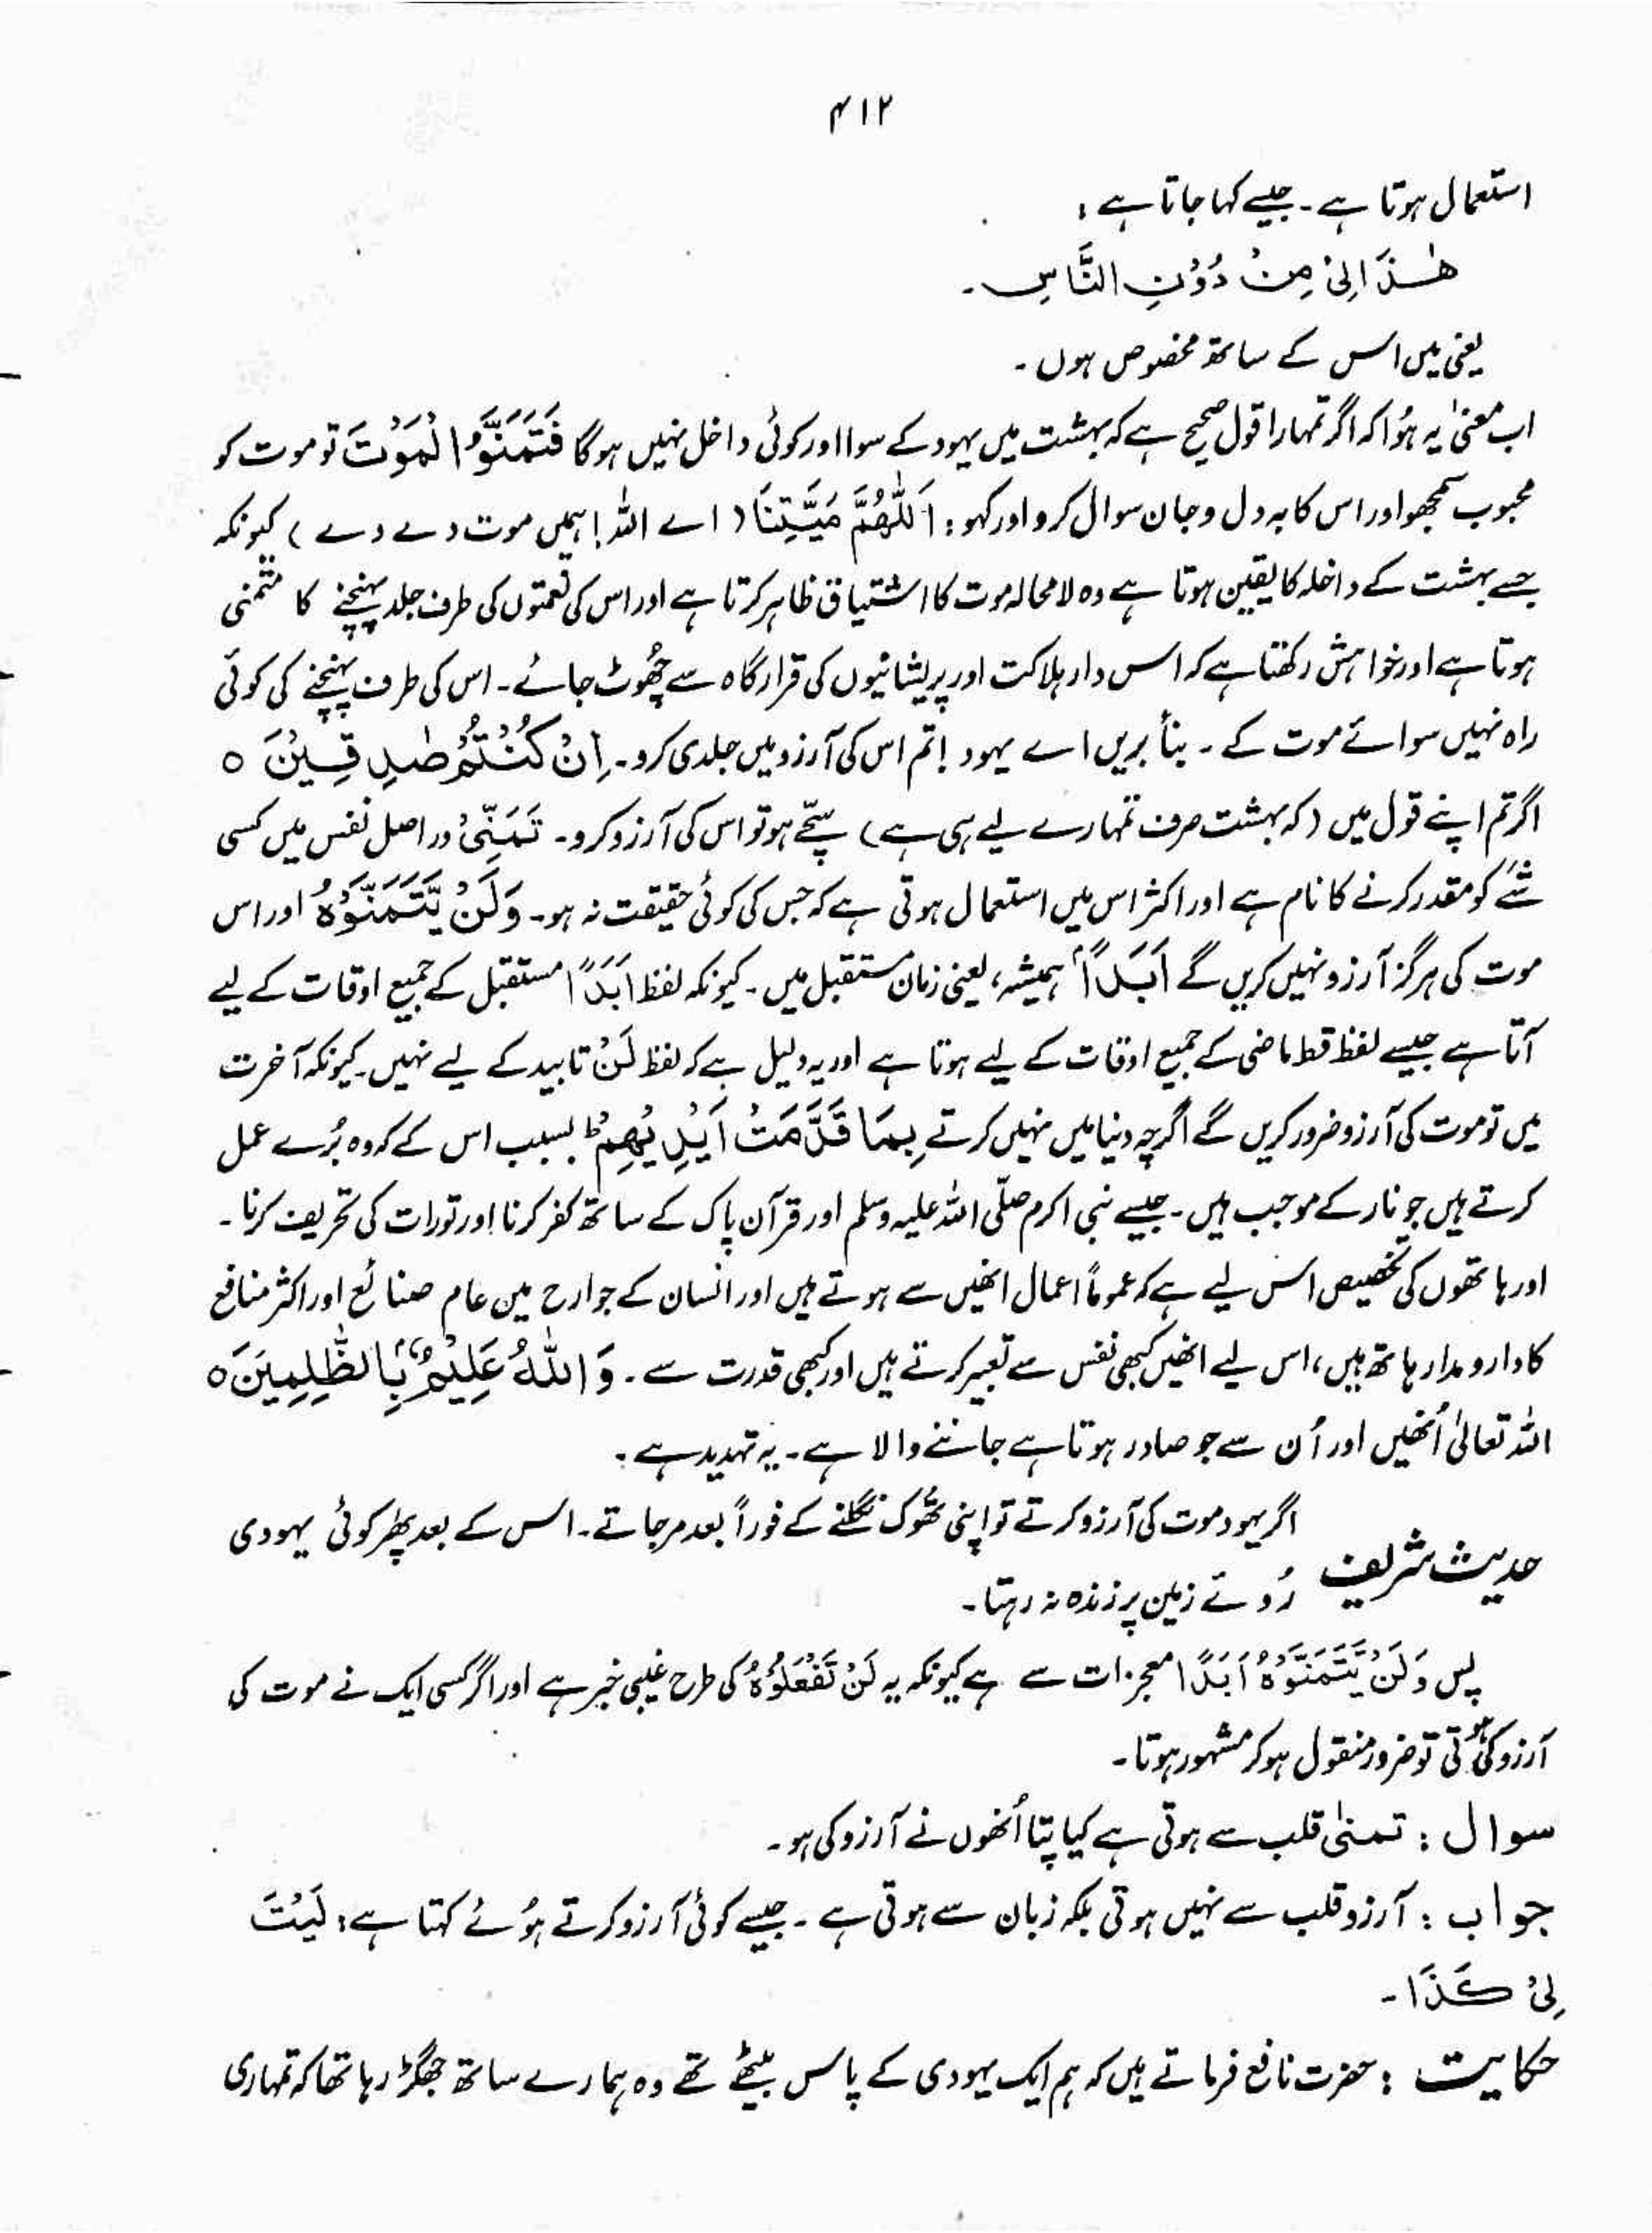 ۴۱۲
استعمال ہوتا ہے۔ جیسے کہا جاتا ہے :
ھٰذَا لِیْ مِنْ دُوْنِ النَّاسِ۔
یعنی میں اس کے ساتھ مخصوص ہوں۔
اب معنیٰ یہ ہُوا کہ اگر تمہارا قول صحیح ہے کہ بہشت میں یہود کے سوا اور کوئی داخل نہیں ہوگا فَتَمَنَّوُا الْمَوْتَ تو موت کو
محبوب سمجھو اور اس کا بہ دل و جان سوال کرو اور کہو : اَللّٰھُمَّ مَیِّتْنَا (اے اللہ! ہمیں موت دے دے) کیونکہ
جسے بہشت کے داخلہ کا یقین ہوتا ہے وہ لا محالہ موت کا اشتیاق ظاہر کرتا ہے اور اس کی نعمتوں کی طرف جلد پہنچنے کا متمنی
ہوتا ہے اور خواہش رکھتا ہے کہ اس دار ہلاکت اور پریشانیوں کی قرار گاہ سے چُھوٹ جائے۔ اس کی طرف پہنچنے کی کوئی
راہ نہیں سوائے موت کے۔ بنأ بریں اے یہود! تم اس کی آرزو میں جلدی کرو۔ اِنْ کُنْتُمْ صٰدِقِیْنَ ہ
اگر تم اپنے قول میں (کہ بہشت صرف تمہارے لیے ہی ہے) سچّے ہو تو اس کی آرزو کرو۔ تَمَنِّیْ دراصل نفس میں کسی
شَے کو مقدر کرنے کا نام ہے اور اکثر اس میں استعمال ہوتی ہے کہ جس کی کوئی حقیقت نہ ہو۔ وَلَنْ یَّتَمَنَّوْہُ اور اس
موت کی ہرگز آرزو نہیں کریں گے اَبَدًاۢ ہمیشہ، یعنی زمان مستقبل میں۔ کیونکہ لفظ اَبَدًا مستقبل کے جمیع اوقات کے لیے
آتا ہے جیسے لفظ قط ماضی کے جمیع اوقات کے لیے ہوتا ہے اور یہ دلیل ہے کہ لفظ لَنْ تابید کے لیے نہیں۔ کیونکہ آخرت
میں تو موت کی آرزو ضرور کریں گے اگرچہ دنیا میں نہیں کرتے بِمَا قَدَّمَتْ اَیْدِیْھِمْ ؕ بسبب اس کے کہ وہ بُرے عمل
کرتے ہیں جو نار کے موجب ہیں۔ جیسے نبی اکرم صلّی اللہ علیہ وسلم اور قرآن پاک کے ساتھ کفر کرنا اور تورات کی تحریف کرنا۔
اور ہاتھوں کی تخصیص اس لیے ہے کہ عموماً اعمال انھیں سے ہوتے ہیں اور انسان کے جوارح میں عام صنائع اور اکثر منافع
کا دارومدار ہاتھ ہیں، اس لیے انھیں کبھی نفس سے تعبیر کرتے ہیں اور کبھی قدرت سے۔ وَاللّٰہُ عَلِیْمٌۢ بِالظّٰلِمِیْنَ ہ
اللہ تعالیٰ اُنھیں اور اُن سے جو صادر ہوتا ہے جاننے والا ہے۔ یہ تہدید ہے۔
حدیث شریف اگر یہود موت کی آرزو کرتے تو اپنی تھُوک نگلنے کے فوراً بعد مر جاتے۔ اس کے بعد پھر کوئی یہودی
رُوئے زمین پر زندہ نہ رہتا۔
پس وَلَنْ یَّتَمَنَّوْہُ اَبَدًا معجزات سے ہے کیونکہ یہ لَنْ تَفْعَلُوْہُ کی طرح غیبی خبر ہے اور اگر کسی ایک نے موت کی
آرزو کی ہوتی تو ضرور منقول ہو کر مشہور ہوتا۔
سوال : تمنیٰ قلب سے ہوتی ہے کیا پتا اُنھوں نے آرزو کی ہو۔
جواب : آرزو قلب سے نہیں ہوتی بلکہ زبان سے ہوتی ہے۔ جیسے کوئی آرزو کرتے ہوُئے کہتا ہے : لَیْتَ
لِیْ کَذَا۔
حکایت : حضرت نافع فرماتے ہیں کہ ہم ایک یہودی کے پاس بیٹھے تھے وہ ہمارے ساتھ جھگڑ رہا تھا کہ تمہاری